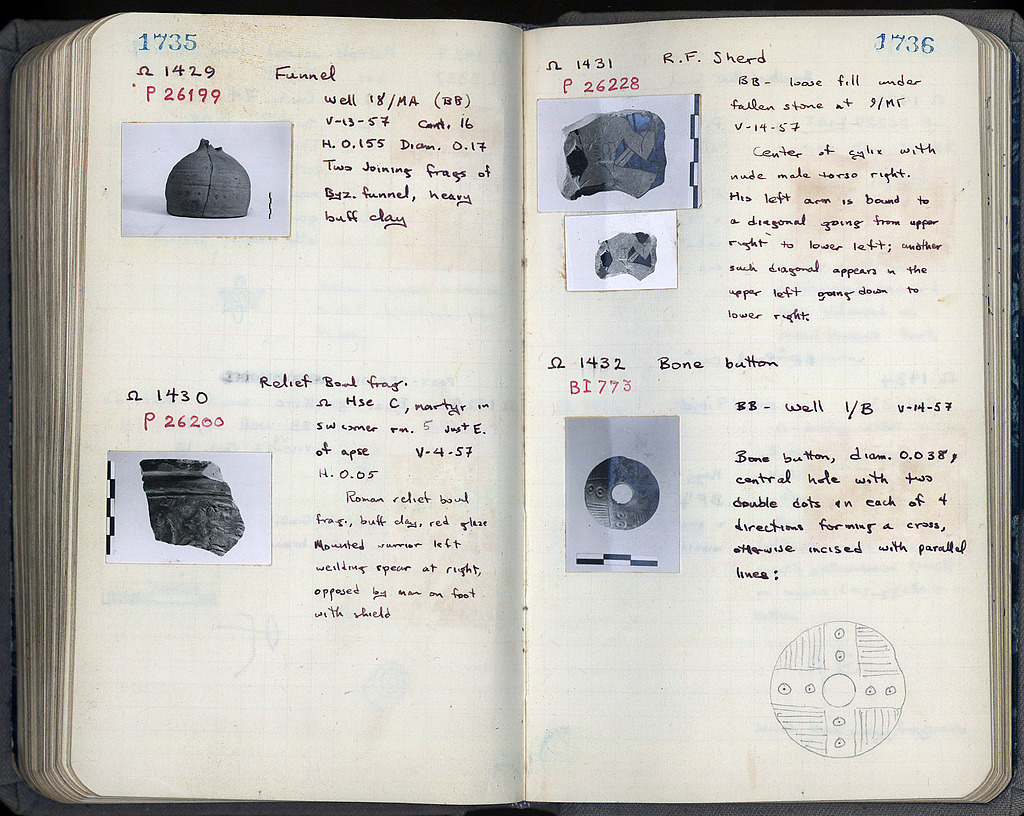 1735
Ω 1429 Funnel
P 26199
Well 18/MA (BB)
V-13-57 Cont. 16
H. 0.155 Diam. 0.17
Two Joining frags of
Byz. funnel, heavy
buff clay
Relief Bowl frag.
Ω 1430
P 26200
Ω Hse C, martyr in
SW corner rm. 5 Just E.
of apse V-4-57
H. 0.05
Roman relief bowl
frag., buff clay, red glaze
Mounted warrior left
weilding spear at right,
opposed by man on foot
with shield
1736
Ω 1431 R.F. Sherd
P 26228
BB- loose fill under
fallen stone at 9/MΓ
V-14-57
Center of cylix with
nude male torso right.
His left arm is bound to
a diagonal going from upper
right to lower left; another
such diagonal appears in the
upper left going down to
lower right.
Ω 1432 Bone button
BI 773
BB- Well 1/B V-14-57
Bone button, diam. 0.038,
central hole with two
double dots in each of 4
directions forming a cross,
otherwise incised with parallel
lines: